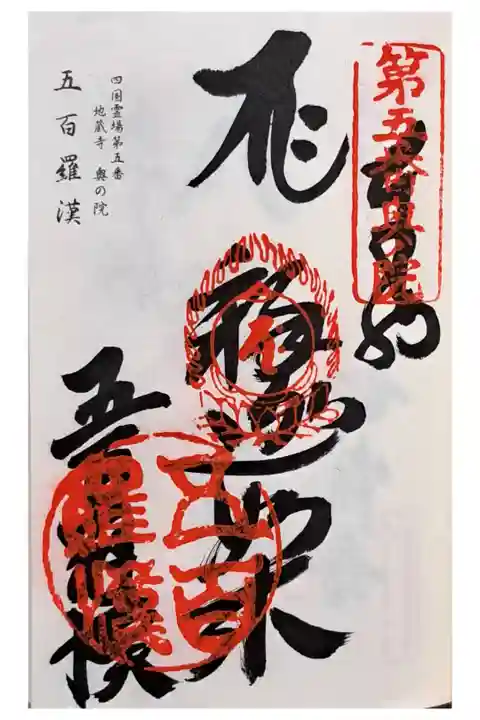 第五番奥之院
奉納
弥勒如来
五百羅漢
五百
羅漢
四国霊場第五番
地蔵寺 奥の院
五百羅漢